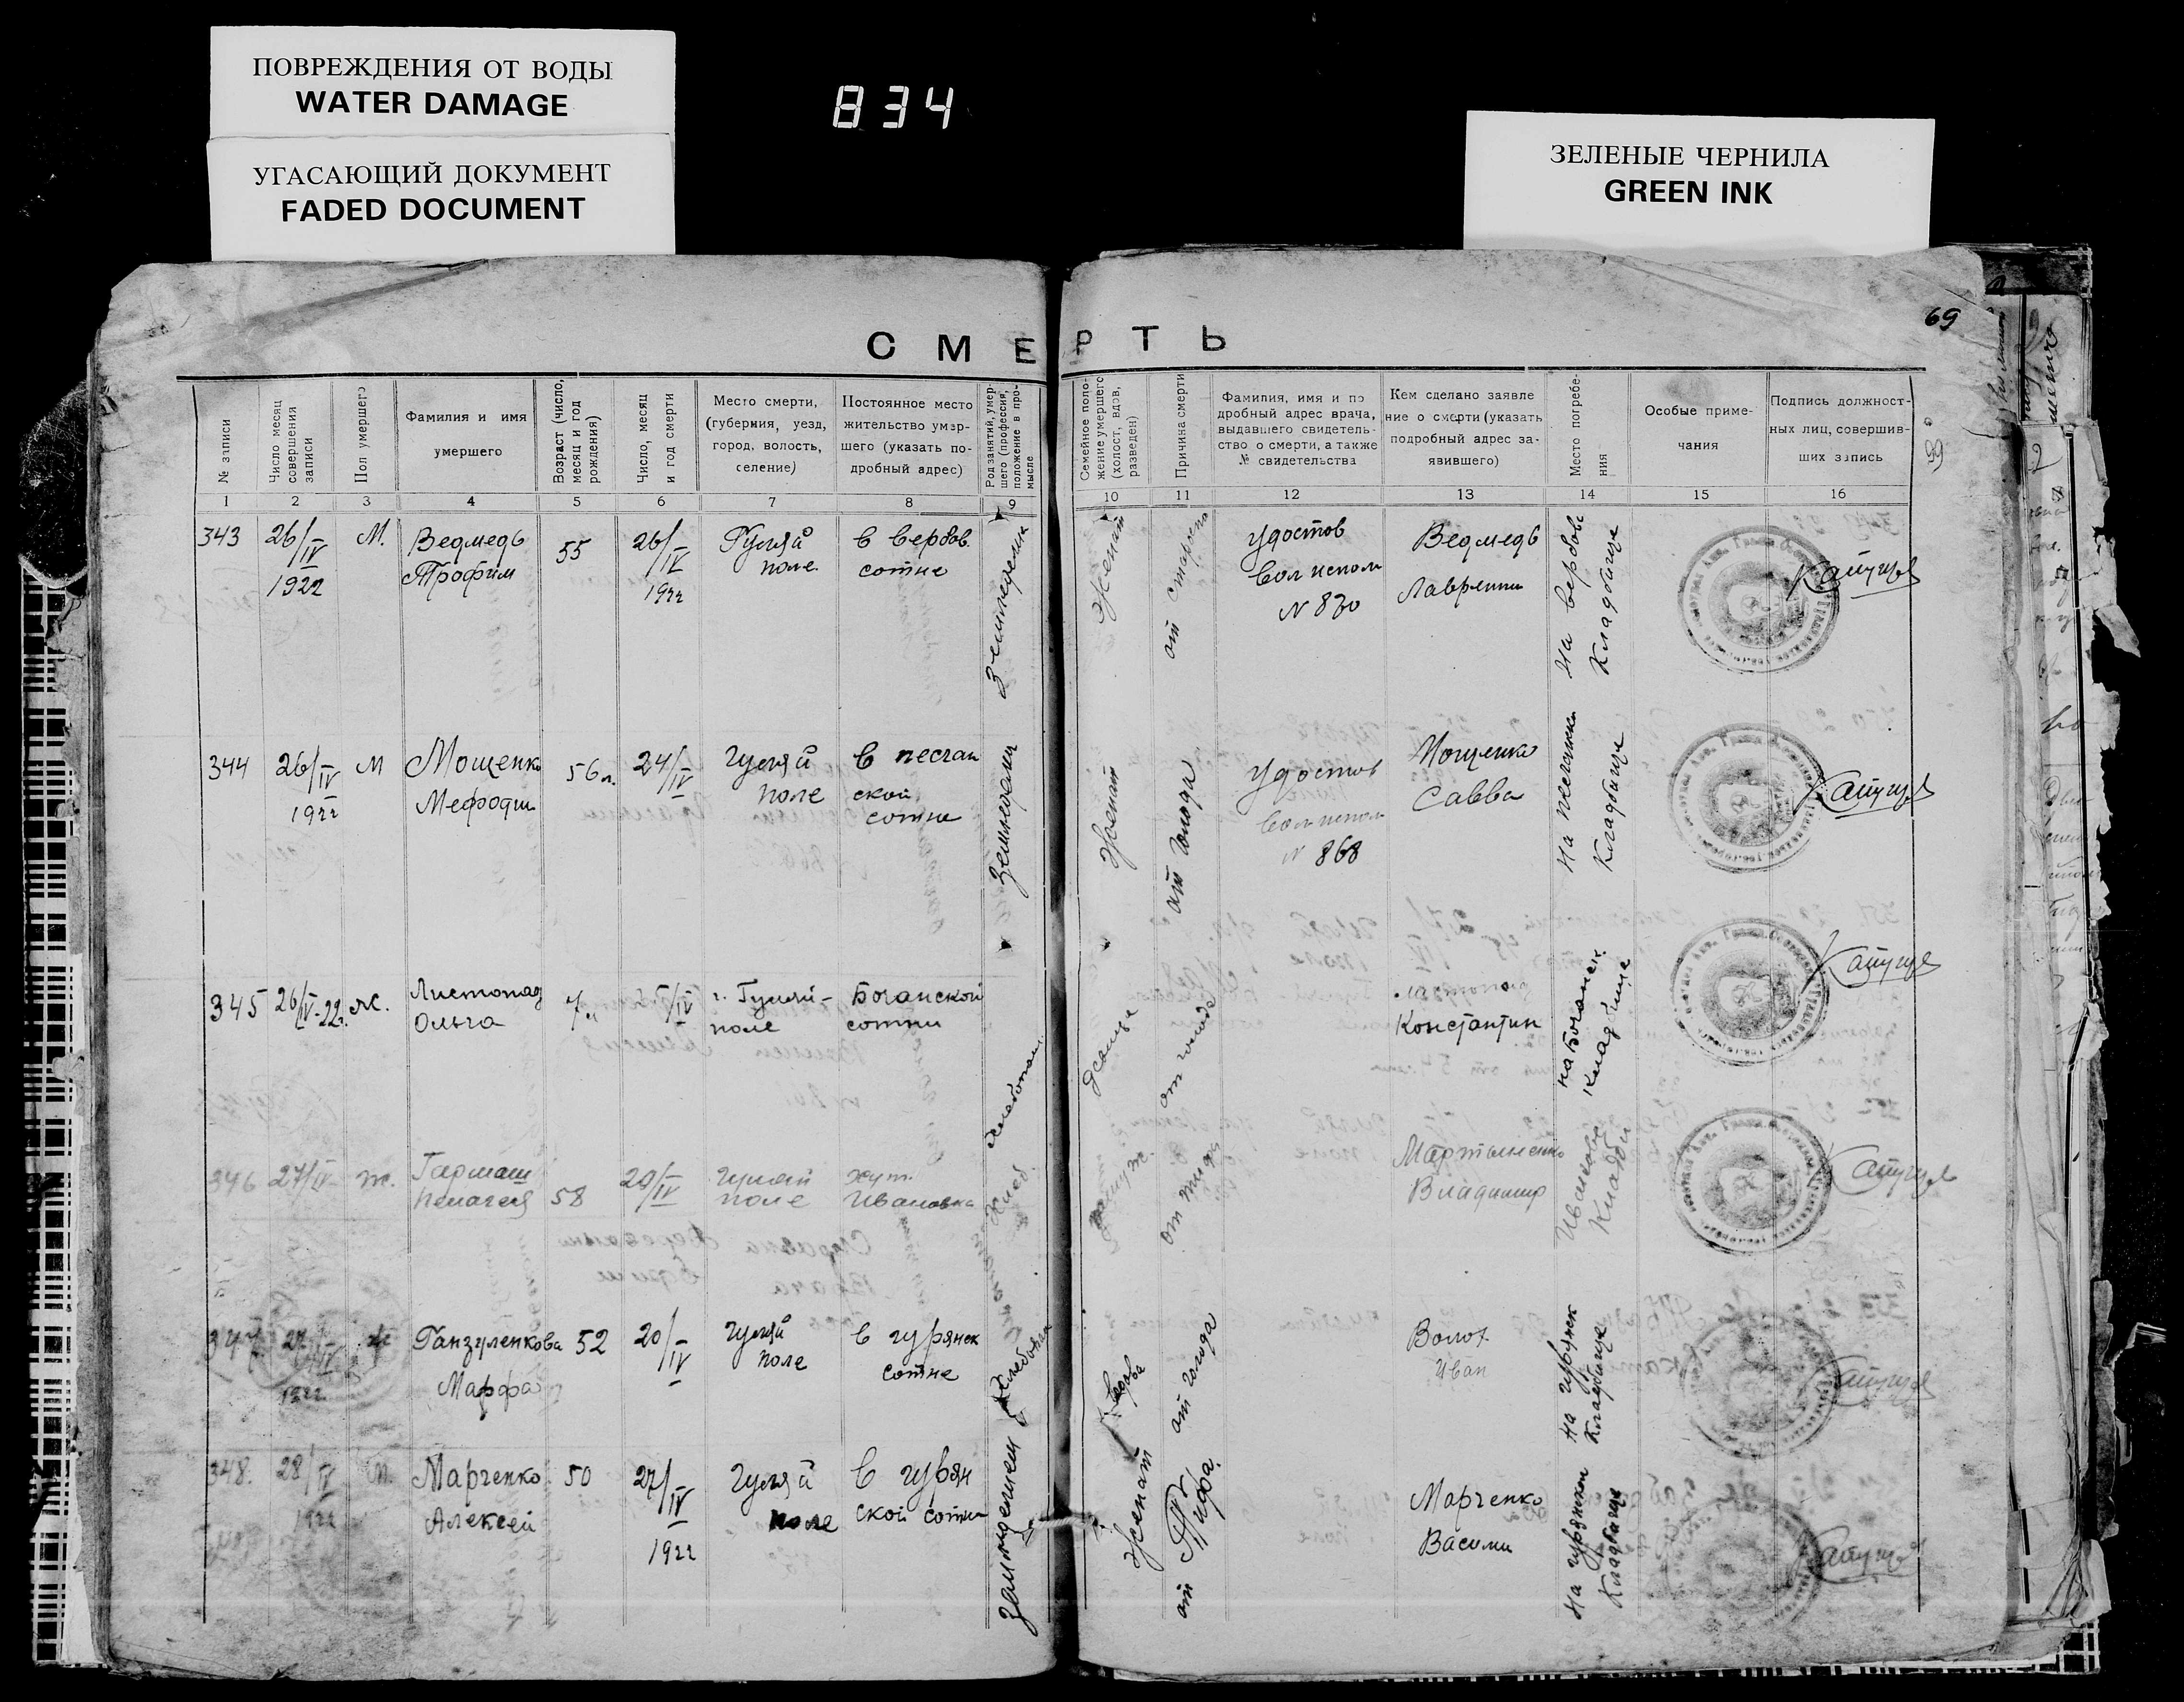 ПОВРЕЖДЕНИЯ ОТ ВОДЫ
WATER DAMAGE
УГАСАЮЩИЙ ДОКУМЕНТ
FADED DOCUMENT
834
ЗЕЛЕНЫЕ ЧЕРНИЛА
GREEN INK
69
СМЕРТЬ
№ записи
Число месяц
совершения
записи
Пол умершего
Фамилия и имя
умершего
Возраст (число,
месяц и год
рождения)
Число, месяц
и год смерти
Место смерти,
(губерния, уезд,
город, волость,
селение)
Постоянное место
жительство умер-
шего (указать по-
дробный адрес)
Род занятий, умер-
шего (профессия,
положение в про-
мысле
Семейное поло-
жение умершего
(холост, вдов,
разведен)
Причина смерти
Фамилия, имя и по
дробный адрес врача,
выдавшего свидетель-
ство о смерти, а также
№ свидетельства
Кем сделано заявле
ние о смерти (указать
подробный адрес за-
явившего)
Место погребе-
ния
Особые приме-
чания
Подпись должност-
ных лиц, совершив-
ших запись
1 2 3 4 5 6 7 8 9 10 11 12 13 14 15 16
343
26/IV
1922
М.
Ведмедь
Трофим
55
26/IV
1922
Гуляй
поле
в вербов.
сотне
Женат
от старости
Удостов
Волиспол
N 830
Ведмедь
Лаврентий
На вербов
Кладбище
344
26/IV
1922
М
Мощенко
Мефодий
56 л.
24/IV
Гуляй
поле
в песчан
ской
сотне
Женат
от голода
Удостов
Волиспол
N 868
Мощенко
Савва
Кладбище
345
26/IV-22г.
Ж.
Листопад
Ольга
г. Гуляй-
поле
Бочанской
сотни
от голода
Константин
на Бочанск.
кладбище
346
27/IV
Ж.
Гармаш
Пелагея
58
20/IV
Гуляй
поле
хут.
Ивановка
от тифа
Мартыненко
Владимир
347
27/IV
1922
Ж
Ганзуленкова
Марфа
52
20/IV
Гуляй
поле
в гурянск
сотне
вдова
от голода
Волох
Иван
На гурянск
Кладбище
348.
28/IV
1922
М.
Марченко
Алексей
50
27/IV
1922
Гуляй
поле
в гурян
ской сотни
Женат
от Тифа
Марченко
Василий
Кладбище